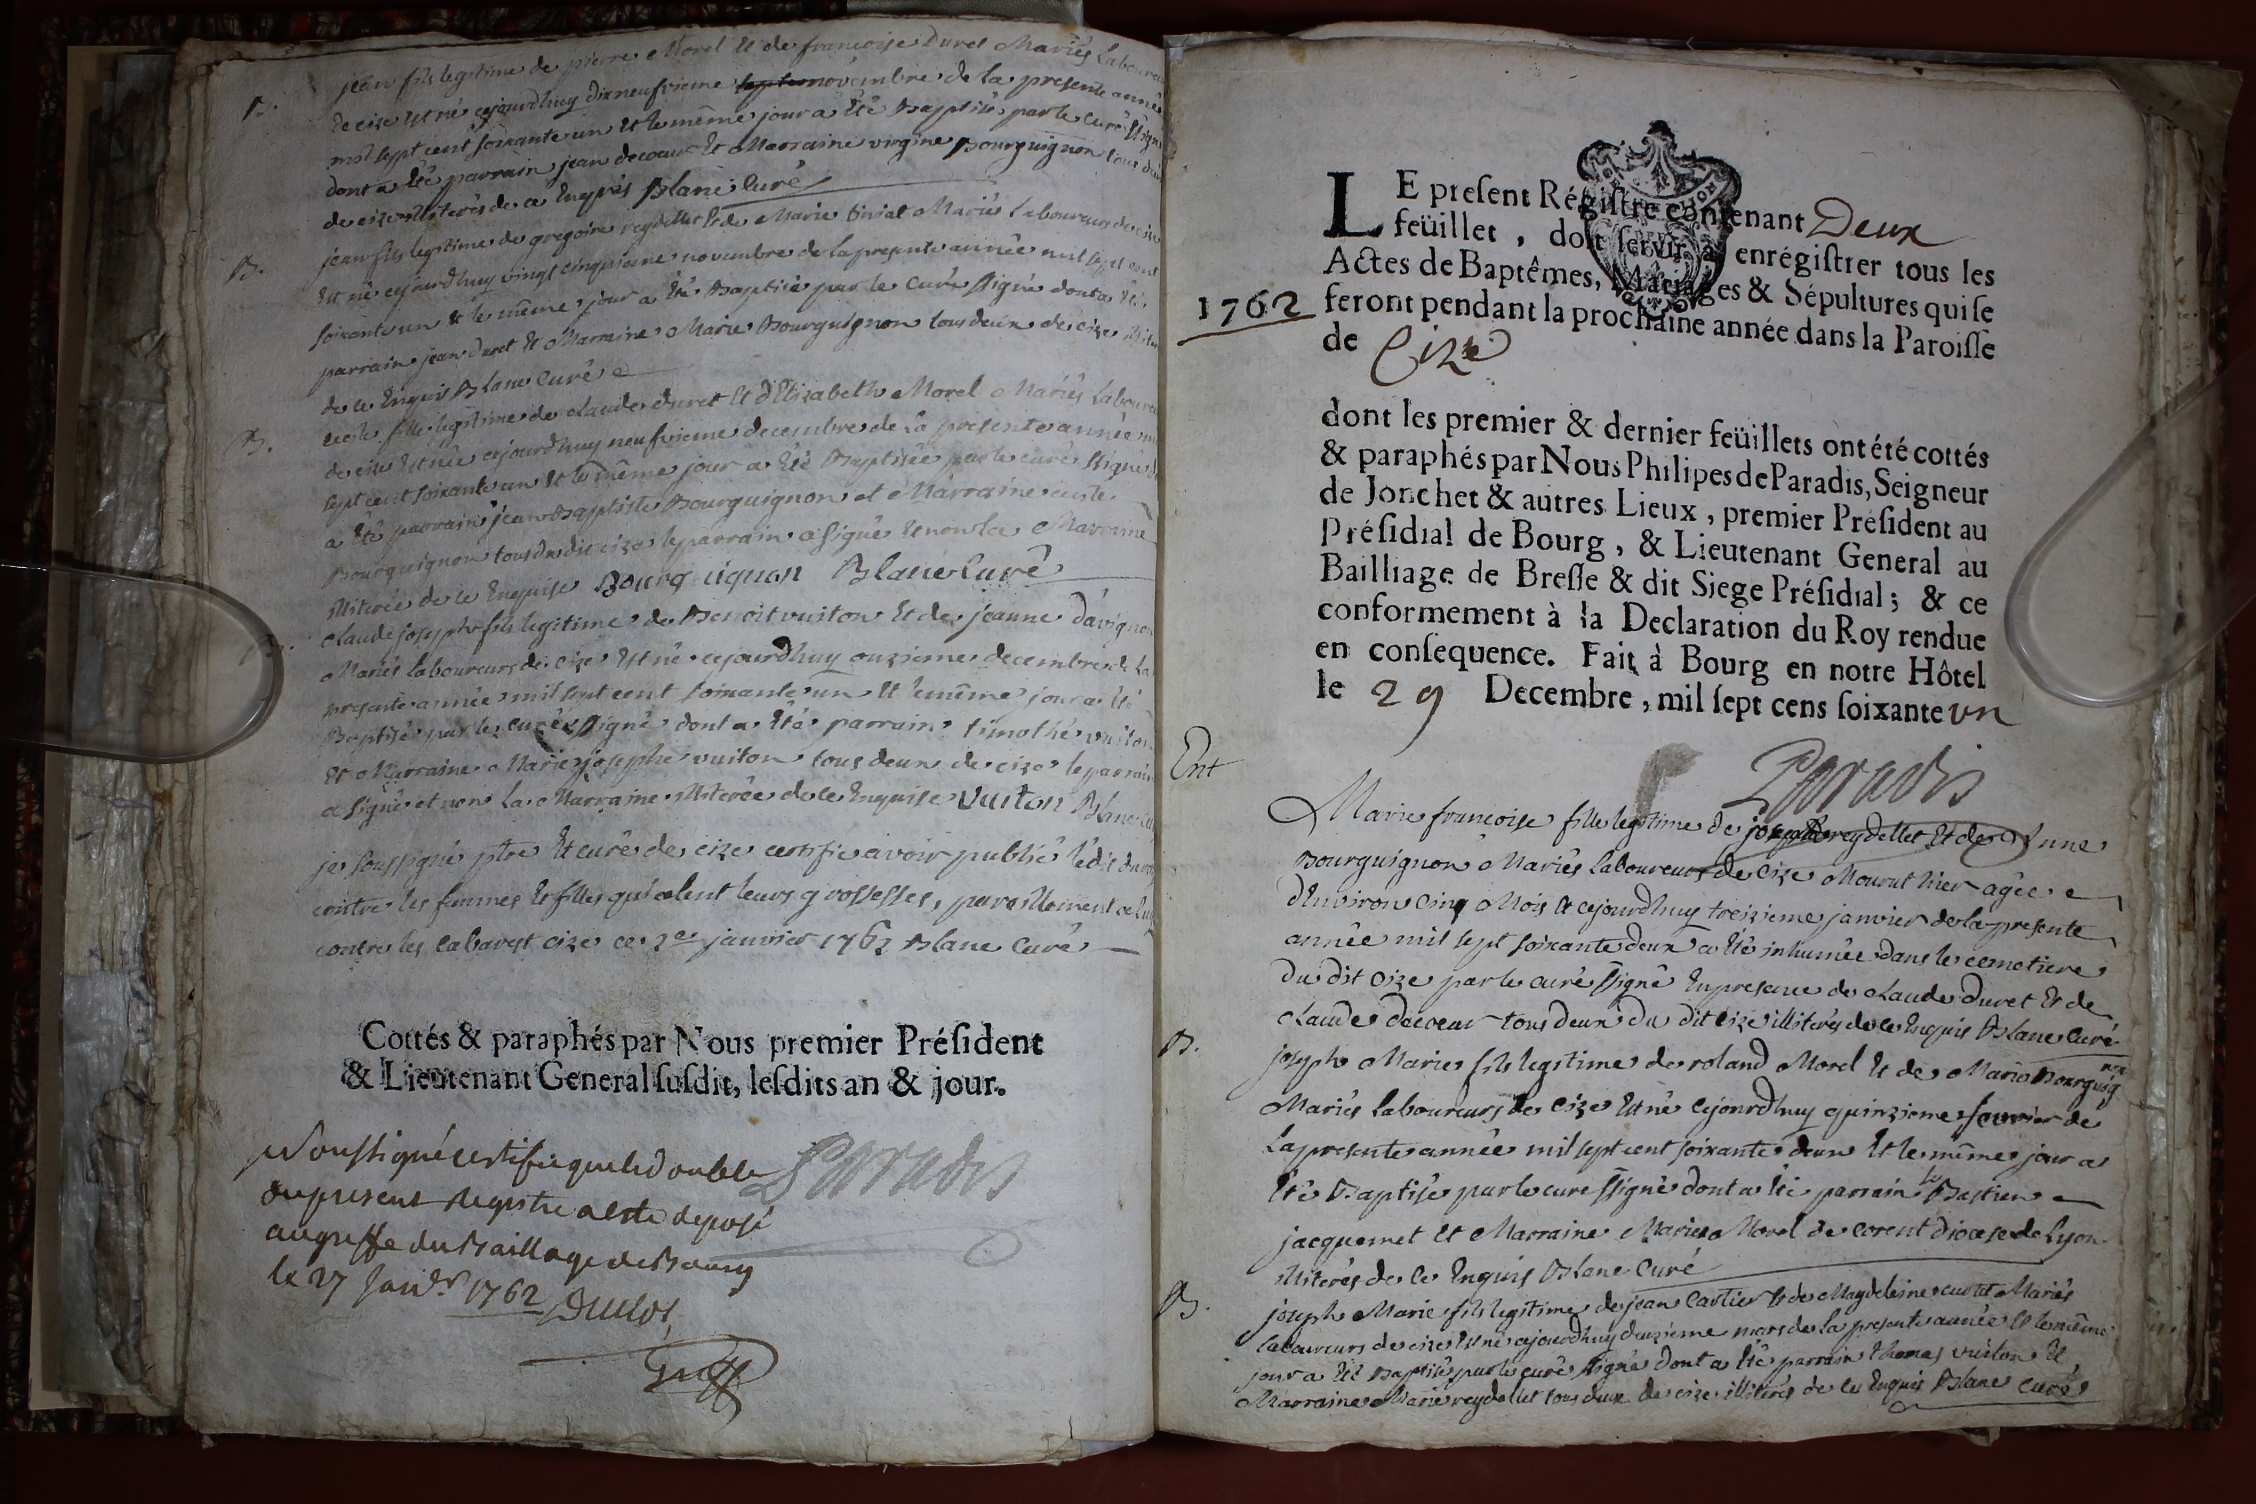 B.
jean fils legitime de pierre Morel et de francoise Duret Mariés Laboureurs
de cize est né cejourdhuy dixneufvieme novembre de la presente année
mil sept cent soixante un et le même jour a été Baptisé par le curé ssigné
dont a été parrain jean decoeur et Marraine virgine Bourguignon tous deux
de cize illiterés de ce Enquis Blanc Curé
B.
jean fils legitime de gregoire reydellet et de Marie Mariés Laboureurs de cize
est né cejourdhuy vingt cinquieme novembre de la presente année mil sept cent
soixante un et le même jour a été Baptisé par le Curé ssigné dont a été
parrain jean Duret et Marraine Marie Bourguignon tous deux de cize
de ce Enquis Blanc Curé
B.
fille legitime de claude duret et d'Elizabeth Morel Mariés Laboureurs
de cize est née cejourdhuy neufvieme decembre de la presente année mil
sept cent soixante un et le même jour a été Baptisée par le curé ssigné
a été parrain jean Baptiste Bourguignon et Marraine
Bourguignon tous du dit cize le parrain a signé et non la Marraine
illiterée de ce Enquise Bourguignon Blanc Curé
claude joseph fils legitime de Benoit vuiton et de jeanne davignon
Mariés laboureurs de cize est né cejourdhuy onzieme decembre de la
presente année mil sept cent soixante un et le même jour a été
Baptisé par le curé ssigné dont a été parrain timothé vuiton
et Marraine Marie josephe vuiton tous deux de cize le parrain
a signé et non la Marraine illiterée de ce Enquise vuiton Blanc
je soussigné ptre et curé de cize certifie avoir publié l'edit du roy
contre les femmes et filles qui celent leurs grossesses, pareillement celuy
contre les cabarest cize ce janvier 1762 Blanc Curé
Cottés & paraphés par Nous premier Président
& Lieutenant General susdit, lesdits an & jour.
Paradis
Noussigné certifie que le double
du present Registre a este deposé
au greffe du Baillage de Bourg
le 27 Janv.r 1762 Duclos
Greff
LE present Régistre contenant Deux
feüillet, doit servir à enrégistrer tous les
Actes de Baptêmes, Mariages & Sépultures qui se
1762
feront pendant la prochaine année dans la Paroisse
de Cize
dont les premier & dernier feüillets ont été cottés
& paraphés par Nous Philipes de Paradis, Seigneur
de Jonchet & autres Lieux, premier Président au
Présidial de Bourg, & Lieutenant General au
Bailliage de Bresse & dit Siege Présidial; & ce
conformement à la Declaration du Roy rendue
en consequence. Fait à Bourg en notre Hôtel
le 29 Decembre, mil sept cens soixante un
Paradis
Ent
Marie francoise fille legitime de joseph reydellet et de Anne
Bourguignon Mariés laboureurs de cize Mourut hier agée
d'Environ cinq Mois et cejourdhuy treizieme janvier de la presente
année mil sept soixante deux a été inhumée dans le cemetiere
du dit cize par le curé ssigné En presence de claude duret et de
claude decoeur tous deux du dit cize illiterés de ce Enquis Blanc Curé
B.
joseph Marie fils legitime de roland Morel et de Marie Bourguig
non
Mariés laboureurs de cize est né cejourdhuy quinzieme fevrier de
la presente année mil sept cent soixante deux et le même jour a
été Baptisé par le curé ssigné dont a été parrain Bastien
jacquemet et Marraine Marie Morel de corent diocese de Lyon
illiterés de ce Enquis Blanc Curé
B.
joseph Marie fils legitime de jean Cartier et de Magdeleine curtil Mariés
laboureurs de cize est né cejourdhuy deuzieme mars de la presente année et le même
jour a été Baptisé par le curé ssigné dont a été parrain thomas vuiton et
Marraine Marie reydellet tous deux de cize illiterés de ce Enquis Blanc Curé